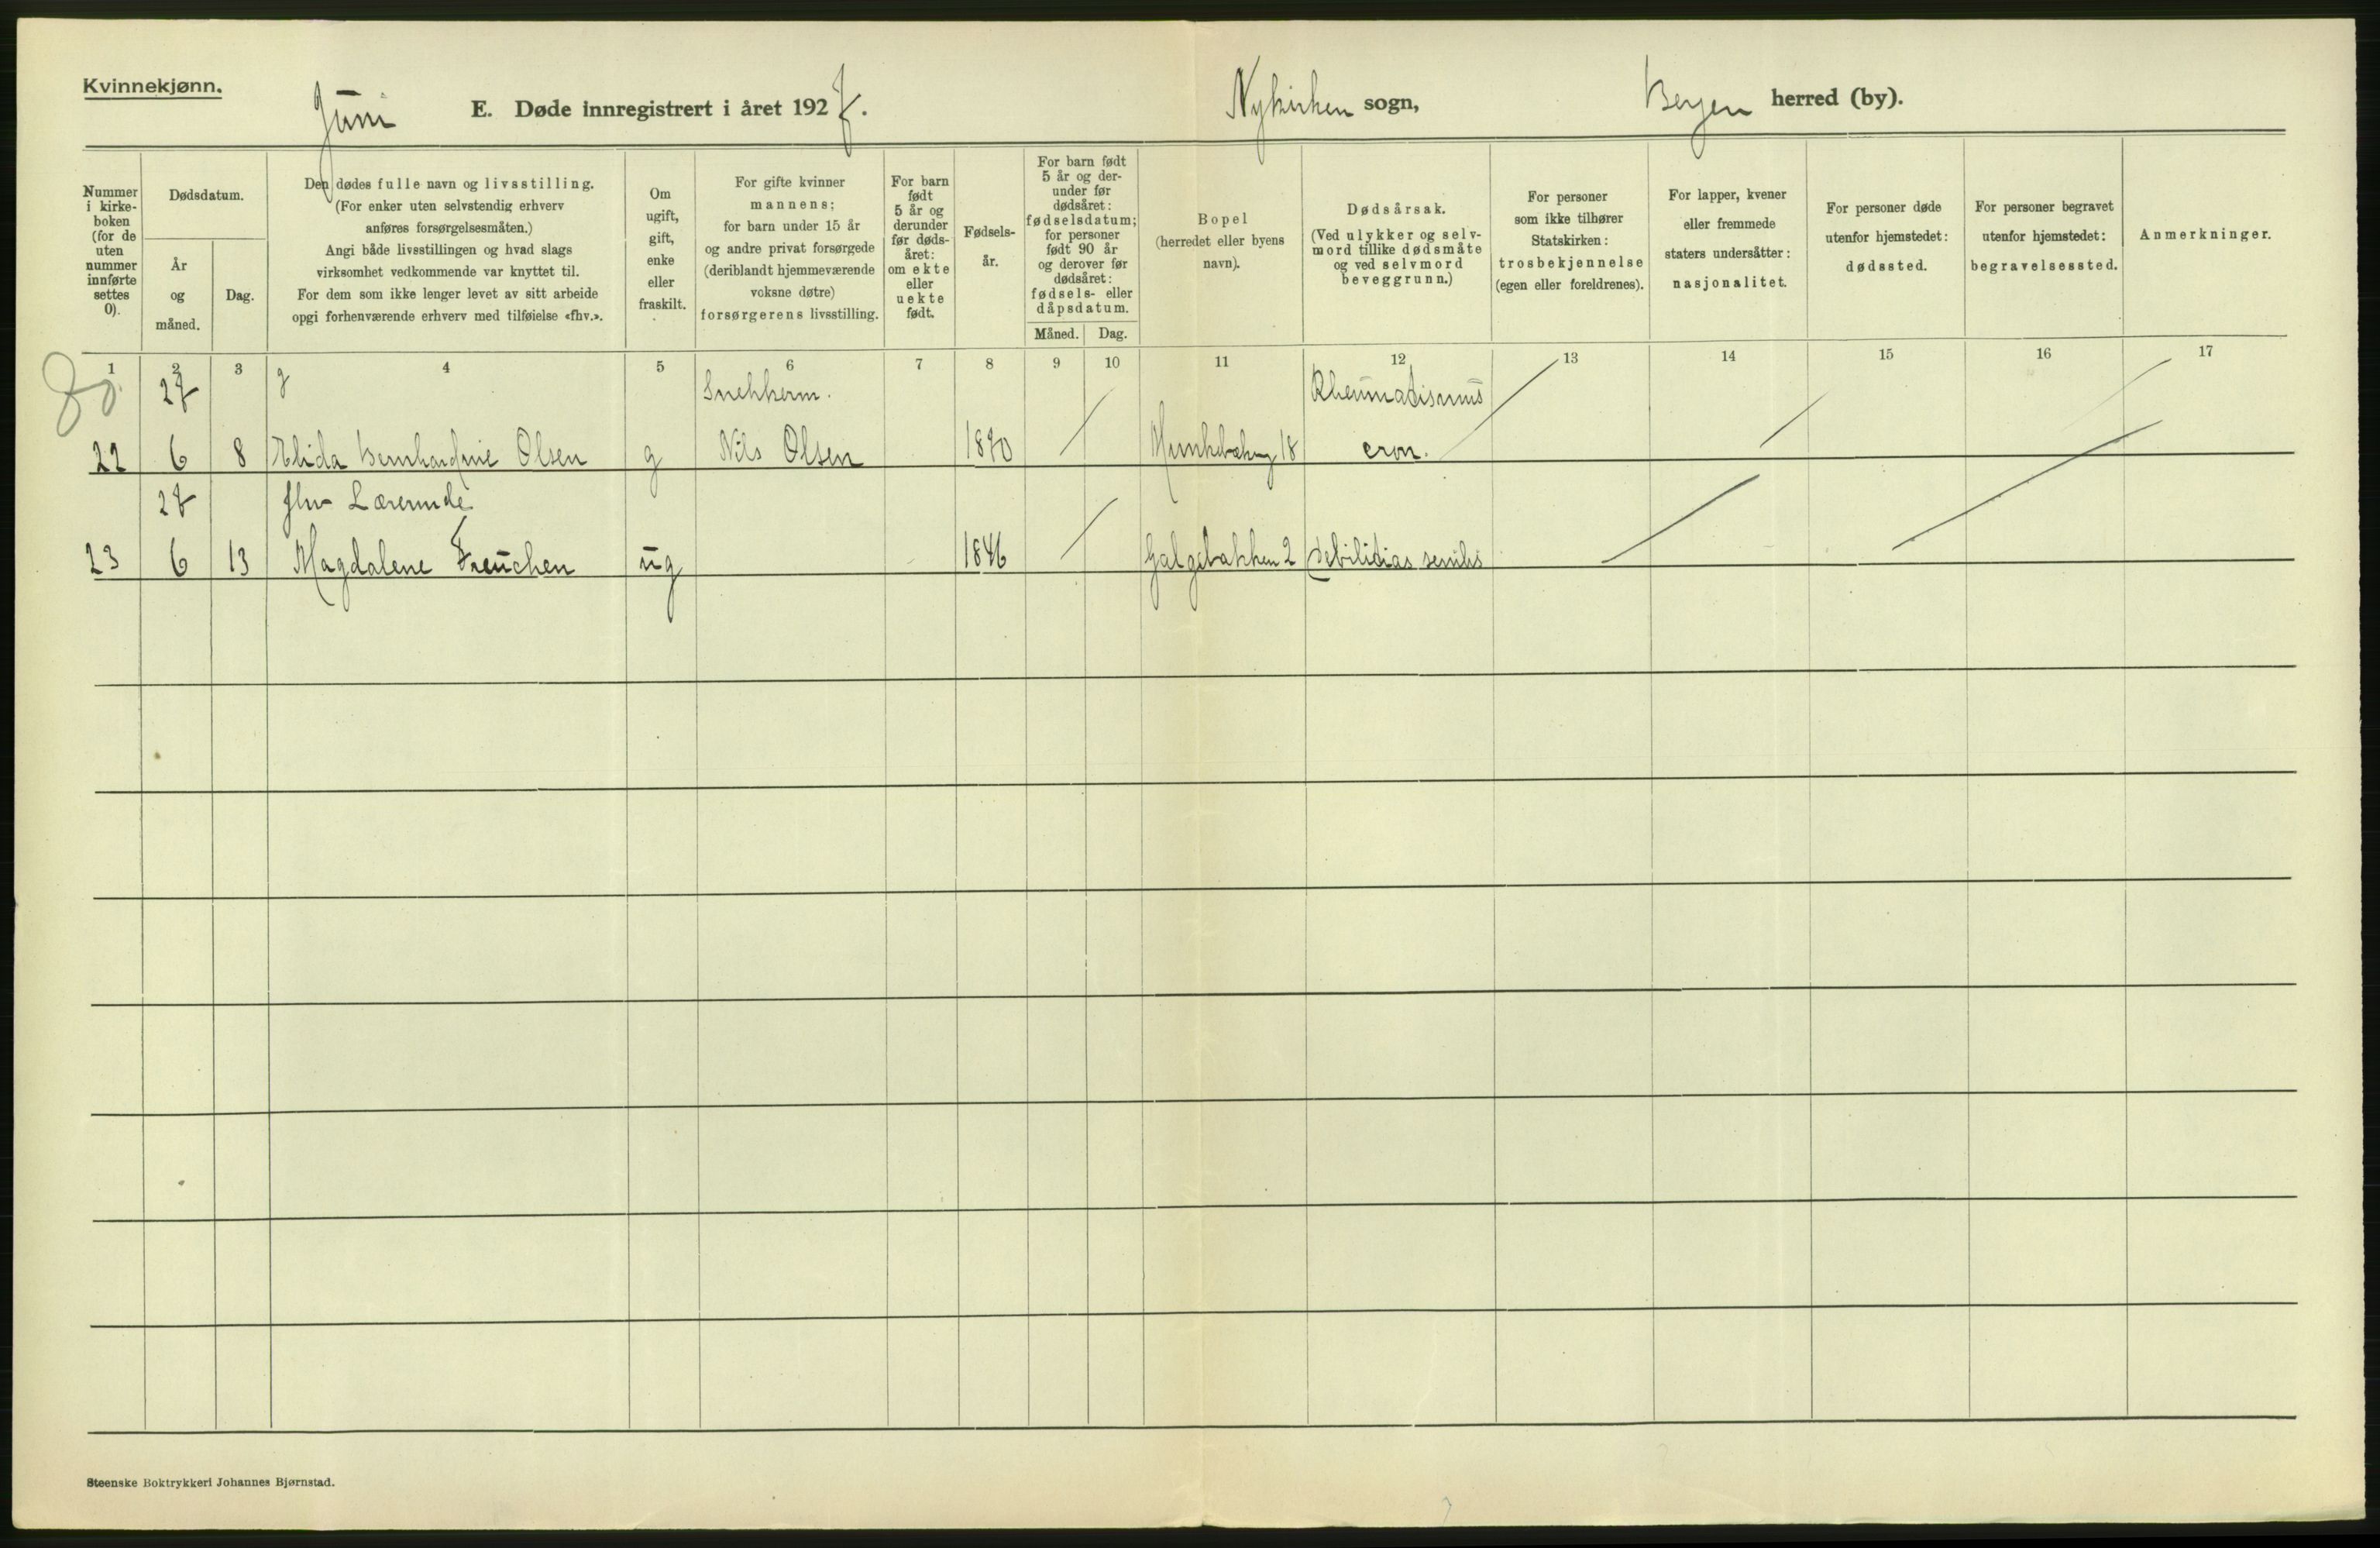 Kvinnekjønn.
Juni E. Døde innregistrert i året 1927. Nykirken sogn, Bergen herred (by).
Nummer i kirke- boken (for de uten nummer innførte settes 0).
Dødsdatum.
År og måned.
Dag.
Den dødes fulle navn og livsstilling.
(For enker uten selvstendig erhverv
anføres forsørgelsesmåten.)
Angi både livsstillingen og hvad slags
virksomhet vedkommende var knyttet til.
For dem som ikke lenger levet av sitt arbeide
opgi forhenværende erhverv med tilføielse «fhv.».
Om ugift, gift, enke eller fraskilt.
For gifte kvinner
mannens;
for barn under 15 år
og andre privat forsørgede
(deriblandt hjemmeværende
voksne døtre)
forsørgerens livsstilling.
For barn født 5 år og derunder før døds- året: om ekte eller uekte født.
Fødsels- år.
For barn født
5 år og der-
under før
dødsåret:
fødselsdatum;
for personer
født 90 år
og derover før
dødsåret:
fødsels- eller
dåpsdatum.
Måned. Dag.
Bopel
(herredet eller byens
navn).
Dødsårsak.
(Ved ulykker og selv-
mord tillike dødsmåte
og ved selvmord
beveggrunn.)
For personer
som ikke tilhører
Statskirken:
trosbekjennelse
(egen eller foreldrenes).
For lapper, kvener
eller fremmede
staters undersåtter:
nasjonalitet.
For personer døde
utenfor hjemstedet:
dødssted.
For personer begravet
utenfor hjemstedet:
begravelsessted.
Anmerkninger.
1 2 3 4 5 6 7 8 9 10 11 12 13 14 15 16 17
80. 27 g Snekkerm. Rheumatismus
22 6 8 Elida Bernhardine Olsen g Nils Olsen 1870 18 cron.
27 fhv Lærerinde
23 6 13 Magdalene Freuchen ug 1846 Galgebakken 2 Debilitias senilis
Steenske Boktrykkeri Johannes Bjørnstad.